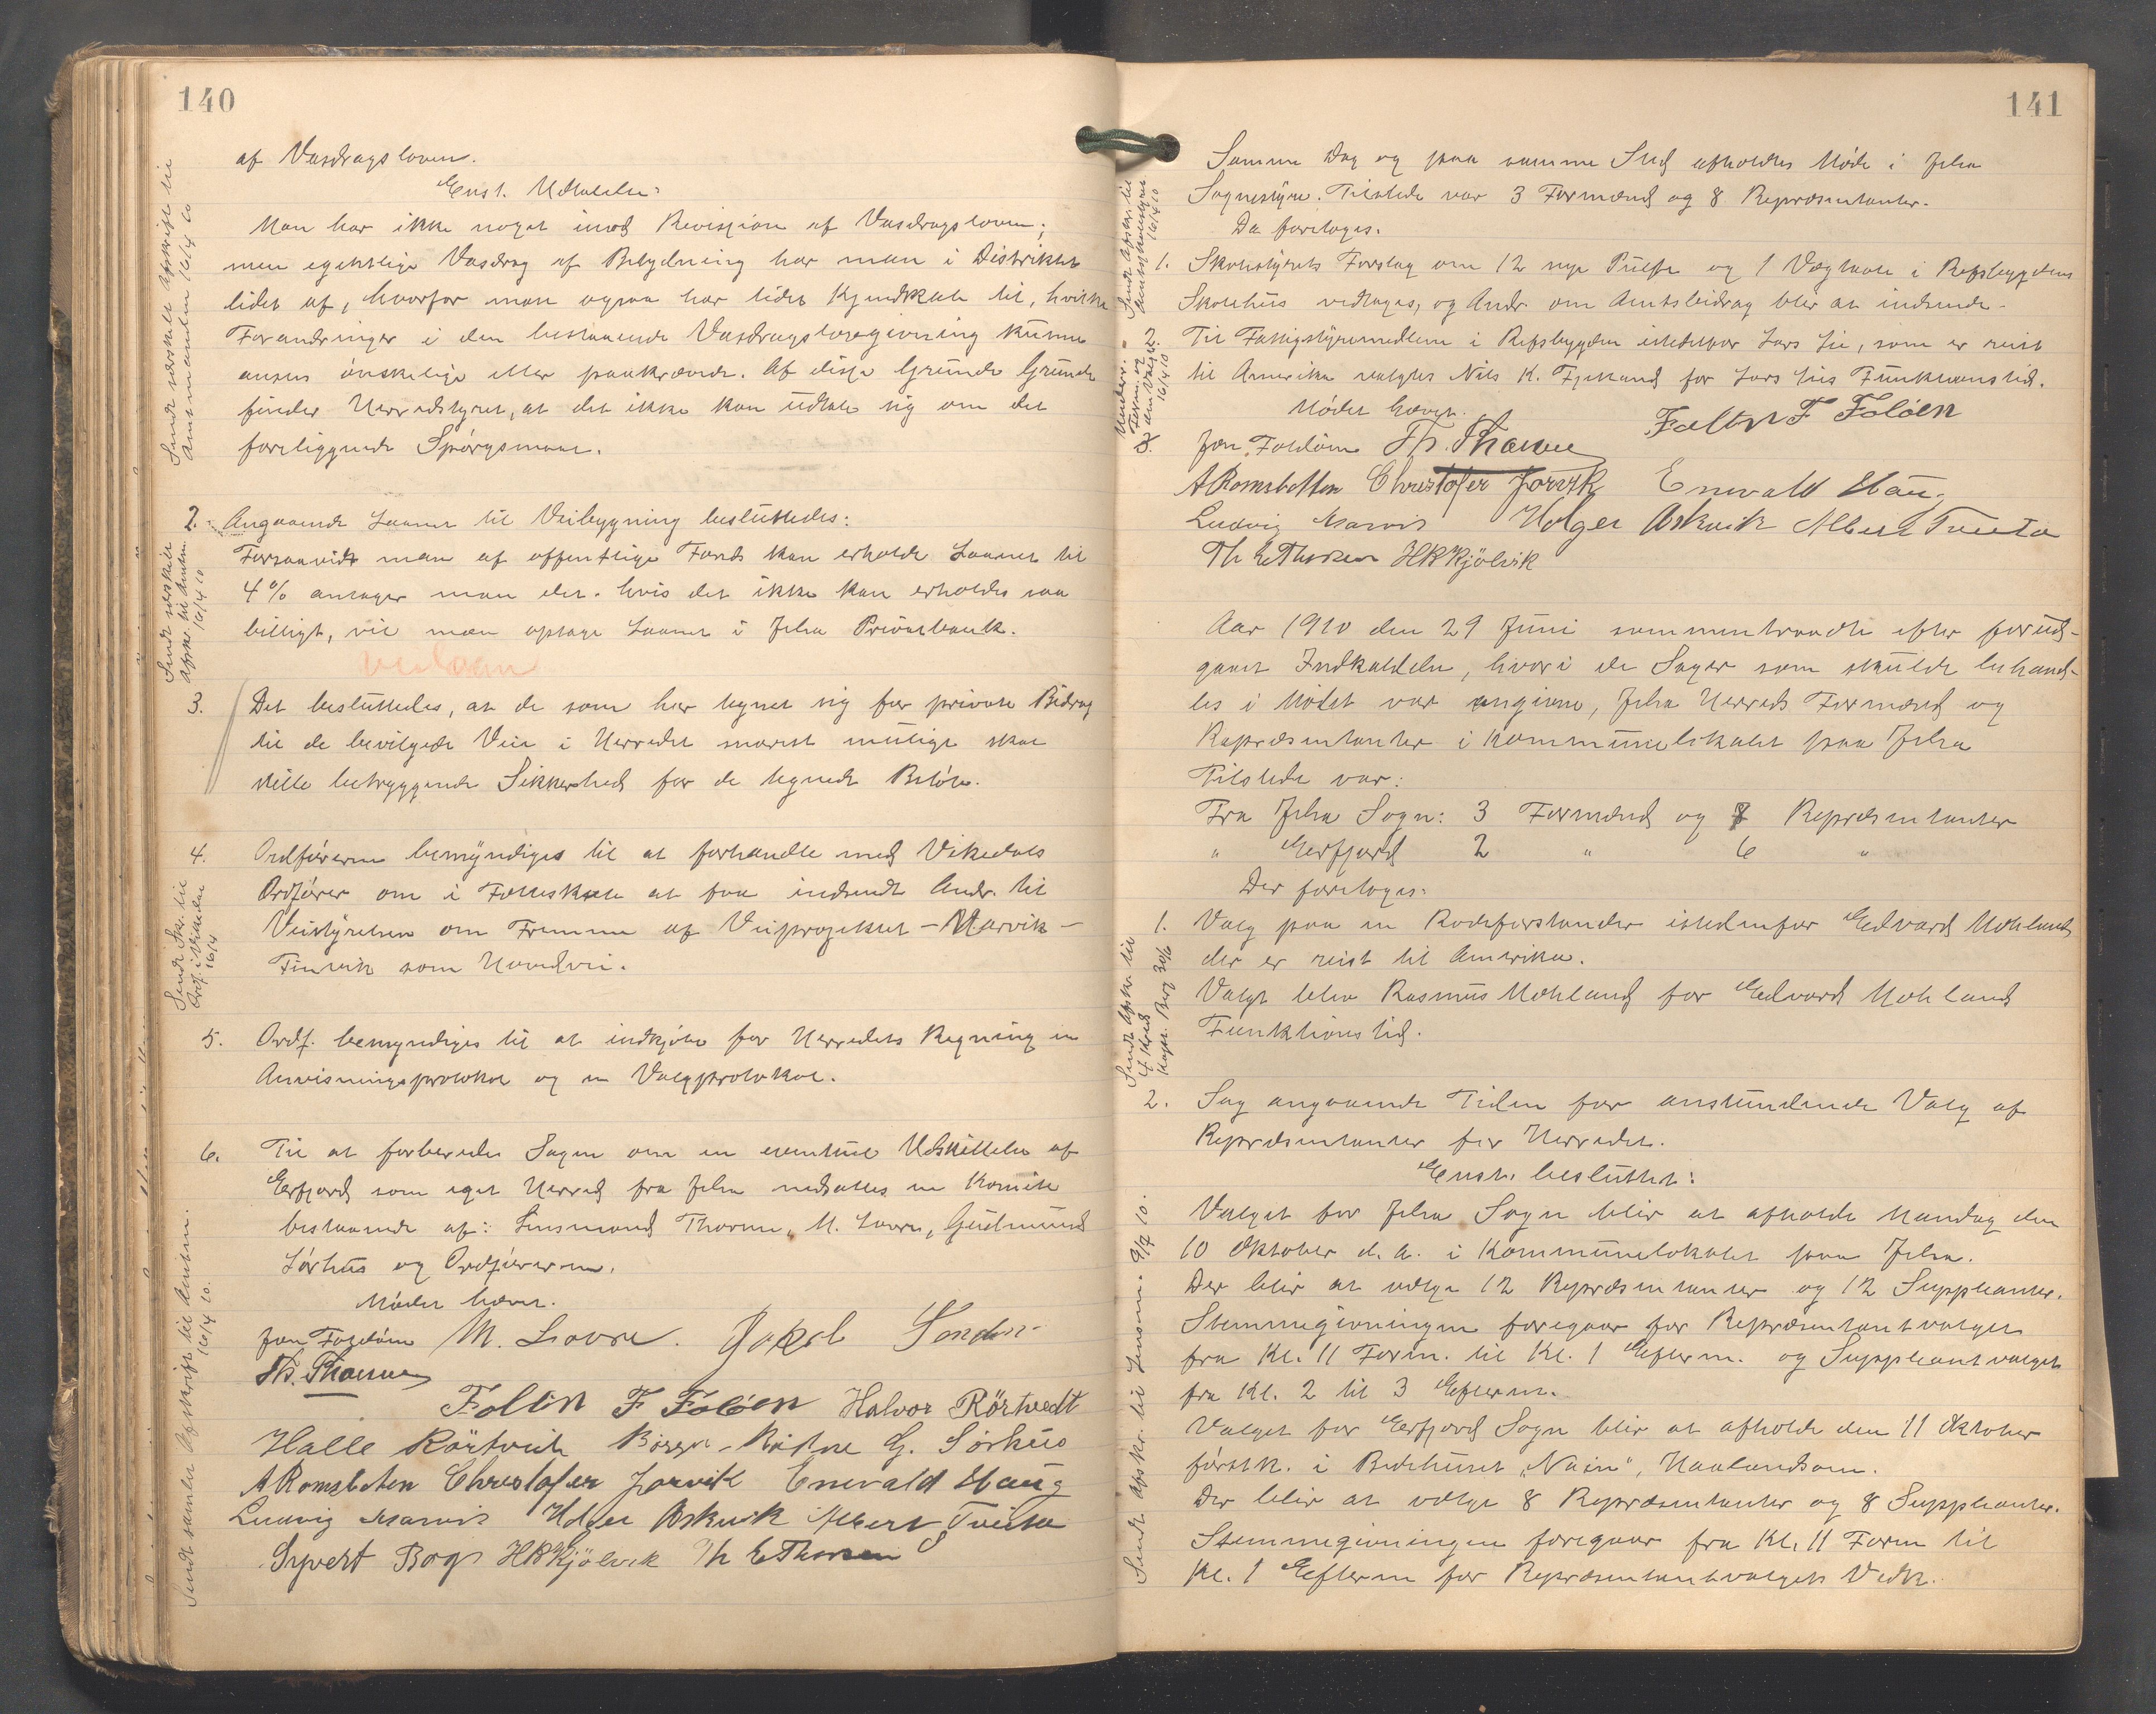 140
af Vasdragsloven.
Enst. Udtalelse:
Man har ikke noget imod Revisjion af Vasdragsloven;
men egentlige Vasdrag af Betydning har man i Distriktet
lidet af, hvorfor man ogsaa har lidet Kjendskab til, hvilke
Forandringer i den bestaaende Vasdragslovgivning kunne
ansees ønskelige eller paakrævede. Af disse Grunde Grunde
finder Herredstyret, at det ikke kan udtale sig om det
foreliggende Spørgsmaal.
Sendt særskilt Afskrift til
Amtmanden 16/4 10
2. Angaaende Laanet til Veibygning besluttedes:
Forsaavidt man af offentlige Fonds kan erholde Laanet til
4% antager man det. hvis det ikke kan erholdes saa
billigt, vil man optage Laanet i Jelsa Privatbank.
Sendt særskilt
Afskr. til Amtm.
16/4 10
veilaan
3. Det besluttedes, at de som har tegnet sig for private Bidrag
til de bevilgede Veie i Herredet snarest muligt skal
stille betryggende Sikkerhed for de tegnede Beløb.
4. Ordføreren bemyndiges til at forhandle med Vikedals
Ordfører om i Fælleskab at faa indsendt Andr. til
Veistyrelsen om Fremme af Veiprojektet - Marvik -
Finvik som Hovedvei.
Sendt Skr. til
Ordf. i Vikedal
16/4
5. Ordf. bemyndiges til at indkjøbe for Herredets Regning en
Anvisningsprotokol og en Valgprotokol.
6. Til at forberede Sagen om en eventuel Udskillelse af
Erfjord som eget Herred fra Jelsa nedsattes en Komite
bestaaende af: Lensmand Thorsen, M. Lovra, Gudmund
Sørhus og Ordføreren.
Mødet hævet.
Sendt samlet Afskrift til Amtm.
16/4 10.
Jon Foldøen M. Lovra. Jakob
Th. Thorsen
F Foløen Halvor Rörtvedt
Halle Rörtveit G. Sörhus
A Ramsbotten Christofer Jorvik Enevald Haug
Ludvig Marvik Holger Askvik Albert Tveita
Syvert Bog HBKjölvik Th E Thorsen
141
Samme Dag og paa samme Sted afholdtes Møde i Jelsa
Sognestyre. Tilstede var 3 Formænd og 8 Repræsentanter.
Da foretoges.
1. Skolestyrets Forslag om 12 nye Pulte og 1 Vægtavle i Refsbygdens
Skolehus vedtoges, og Andr om Amtsbidrag blev at indsende.
2. Til Fattigstyremedlem i Refsbygden istedetfor Lars Lie, som er reist
til Amerika valgtes Nils K. for Lars Lies Funktionstid.
Mødet hævet.
3.
Jon Foldöen Th. Thorsen F Foløen
A Ramsbotten Christofer Jorvik Enevald Haug
Ludvig Marvik Holger Askvik Albert Tveita
Th E Thorsen HBKjölvik
Aar 1910 den 29 Juni sammentraadte efter forud-
gaaet Indkaldelse, hvori de Sager som skulde behand-
les i Mødet var angivne, Jelsa Herreds Formænd og
Repræsentanter i Kommunelokalet paa Jelsa
Tilstede var:
Fra Jelsa Sogn: 3 Formænd og 7 Repræsentanter
" Erfjord 2 " 6 "
Der foretoges:
1. Valg paa en Rodeforstander istedenfor Edvard Mæhland
der er reist til Amerika.
Valgt blev Rasmus Mæhland for Edvard Mæhlands
Funktionstid.
Sendt Afskr til
2. Sag angaaende Tiden for anstundende Valg af
Repræsentanter for Herredet.
Enst. besluttet:
Valget for Jelsa Sogn blir at afholde Mandag den
10 Oktober d. A. i Kommunelokalet paa Jelsa.
Der blir at vælge 12 Repræsentanter og 12 Suppleanter.
Stemmegivningen foregaar for Repræsentantvalget
fra Kl. 11 Form. til Kl. 1 Efterm. og Suppleantvalget
fra Kl. 2 til 3 Efterm.
Valget for Erfjord Sogn blir at afholde den 11 Oktober
førstk. i Bedehuset "Nain", Haalandsosen.
Der blir at vælge 8 Repræsentanter og 8 Suppleanter.
Stemmegivningen foregaar fra Kl. 11 Form til
Kl. 1 Efterm for Repræsentantvalgets Vedk.
Sendt Afskr. til Lensm. 9/9 10.